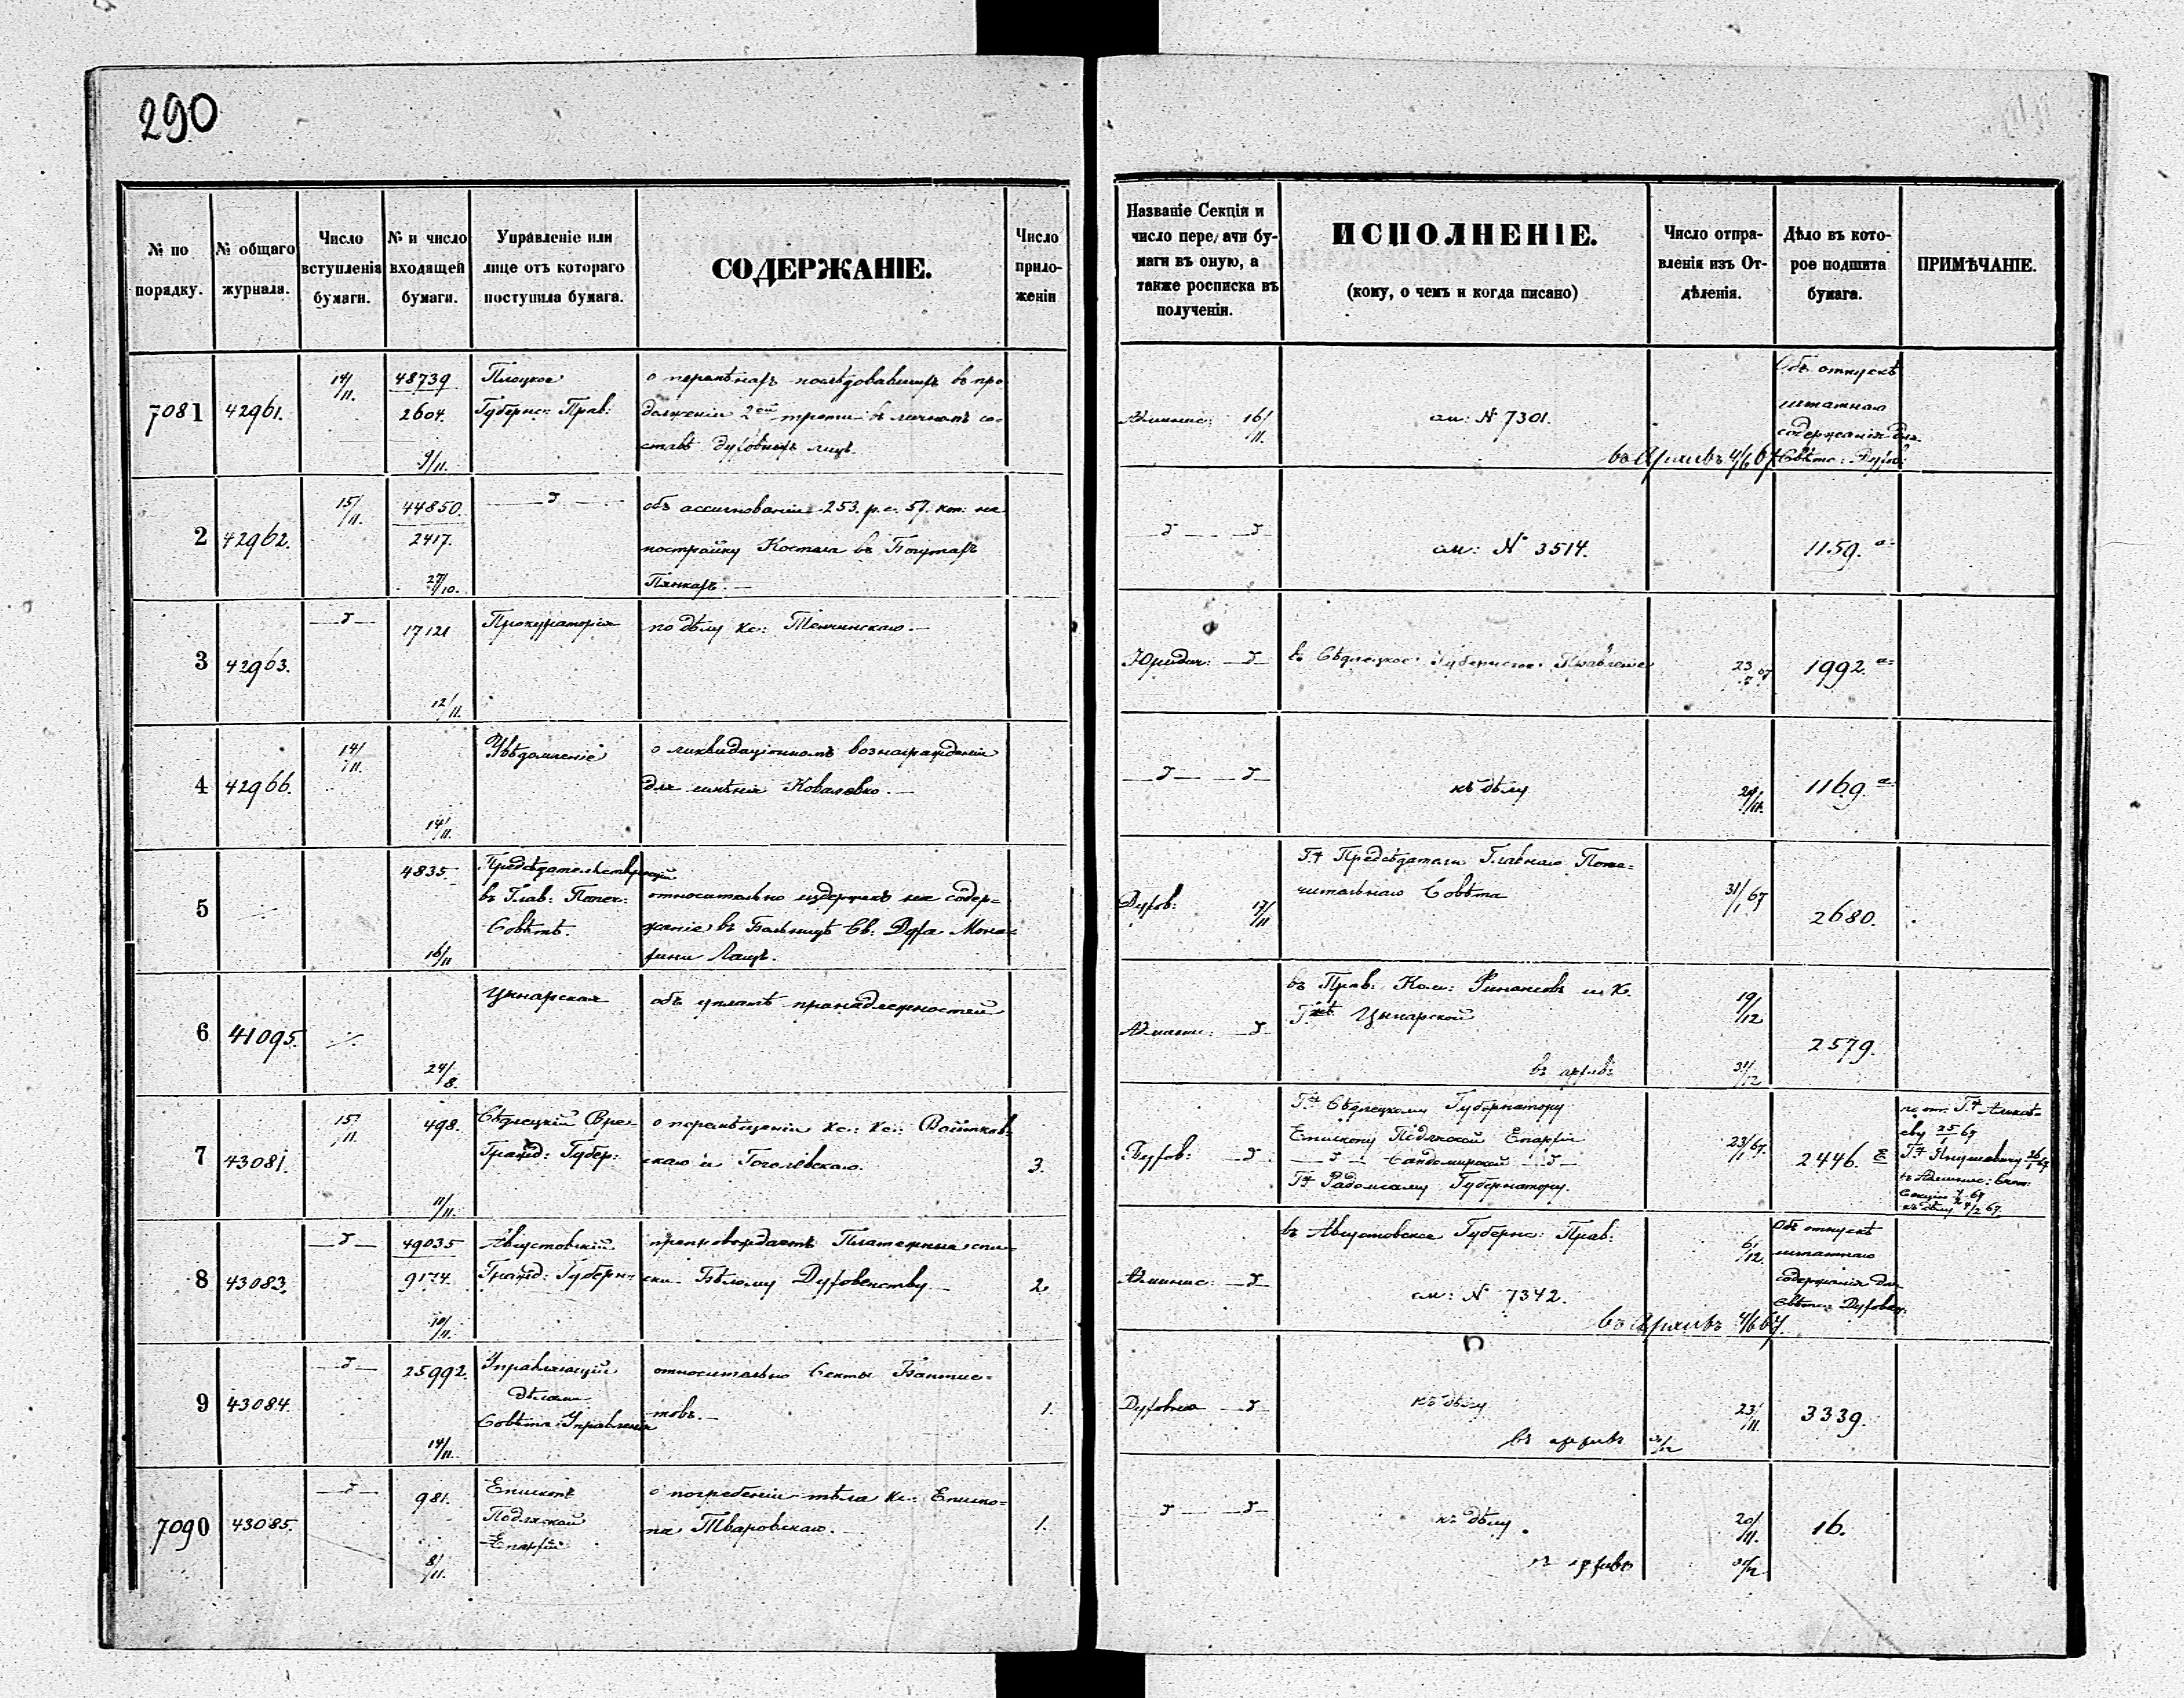 290
№ по порядку.
№ общаго журнала.
Число вступленія бумаги.
№ и число входящей бумаги.
Управленіе или лице отъ котораго поступила бумага.
СОДЕРЖАНІЕ.
Число прило-
женій
Названіе Секціи и
число передачи бу-
маги въ оную, а
также росписка въ
полученіи.
ИСПОЛНЕНІЕ.
(кому, о чемъ и когда писано)
Число отпра-
вленія изъ От-
дѣленія.
Дѣло въ кото-
рое подшита
бумага.
ПРИМѢЧАНІЕ.
7081
42961.
14/11.
48739
2604.
9/11.
Плоцкое
Губернс: Прав:
о перемѣнахъ послѣдовавшихъ въ про-
долженіи 2ой трети въ личномъ со-
ставѣ духовныхъ лицъ.
Админис: 16/11.
см: № 7301.
въ Архивъ 4/6 67
Объ отпускѣ
штатнаго
содержанія для
Свѣтс: Духов:
2
42962.
15/11.
44850.
2417.
27/10.
объ ассигнованіи 253. р. с. 57. коп: на
постройку Костела въ
см: № 3514.
1159. а
3
42963.
17121
12/11.
Прокураторія
по дѣлу кс: Тенчинскаго.
Юридич:
въ Сѣдлецкое Губернское Правленіе
23
1992. а
4
42966.
14/11.
14/11.
Увѣдомленіе
о ликвидаціонномъ вознагражденіи
для имѣнія Ковалевко.
къ дѣлу
1169. а
5
4835.
16/11
Предсѣдательствующій
въ Глав: Попеч:
Совѣтѣ.
относительно издержекъ на содер-
жаніе въ Больницѣ Св: Духа Мона-
хини
Духов: 17/11
Гну Предсѣдателю Главнаго Попе-
чительнаго Совѣта
31/1 67
2680.
6
41095.
24/8.
Цынарская
объ уплатѣ принадлежностей
Админис:
въ Прав: Ком: Финансовъ и К.
Гжѣ Цынарской
въ архивъ
19/12
31/12
2579.
7
43081.
15/11.
498.
11/11.
Сѣдлецкій Вре-
Гражд: Губер:
о перемѣщеніи кс: кс: Войтков-
скаго и Гоголевскаго.
3.
Духов:
Гну Сѣдлецкому Губернатору
Епископу Подляской Епархіи
Сандомирской
Гну Радомскому Губернатору.
23/1 67.
2446.
8
43083.
49035
9174.
10/11.
Августовскій
Гражд: Губерн:
препровождаетъ Платежные спи-
ски Бѣлому Духовенству
2
Админис:
въ Августовское Губернс: Прав:
см: № 7342.
въ Архивъ 4/6 67.
6/12.
Объ отпускѣ
штатнаго
содержанія для
свѣтс: Духовен:
9
43084.
25992.
14/11.
Управляющій
дѣлами
Совѣта Управленія
относительно Секты Баптис-
товъ.
1.
Духовная
къ дѣлу
въ архивъ
23/11.
3339.
7090
43085.
981.
8/11.
Епископъ
Подляской
Епархіи
о погребеніи тѣла кс: Еписко-
па Тваровскаго.
1.
къ дѣлу
въ архивъ
20/11.
16.